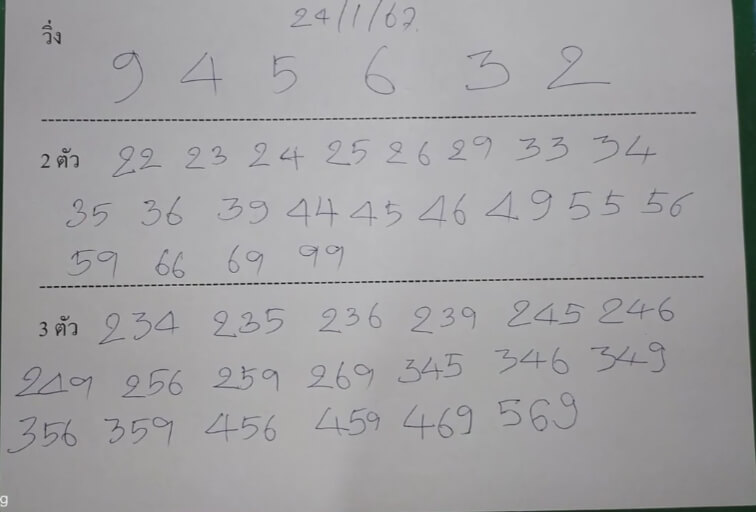 24/1/67
วิ่ง
9 4 5 6 3 2
2 ตัว 22 23 24 25 26 29 33 34
35 36 39 44 45 46 49 55 56
59 66 69 99
3 ตัว 234 235 236 239 245 246
249 256 259 269 345 346 349
356 359 456 459 469 569
g